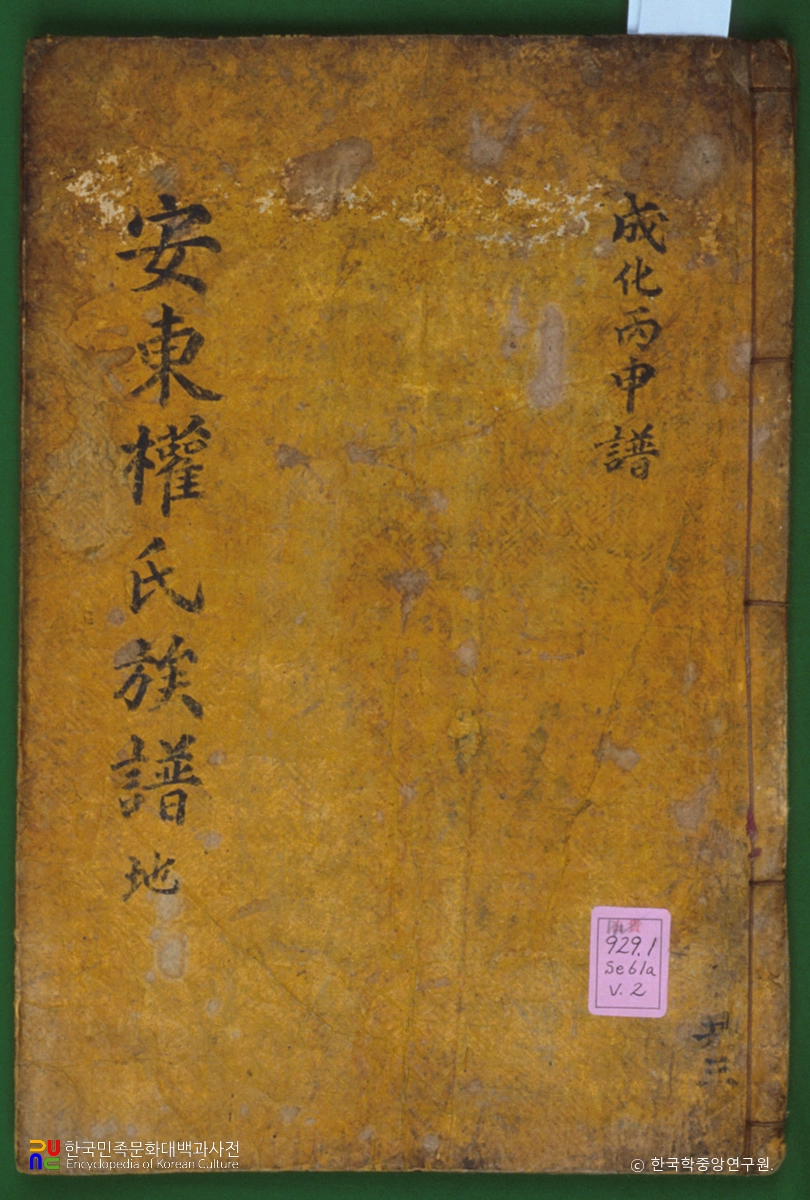 成化丙申譜
安東權氏族譜 地
929.1
Se61a
v.2
共三
한국민족문화대백과사전
Encyclopedia of Korean Culture
© 한국학중앙연구원.